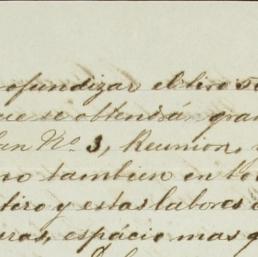 ofundizar el tiro 50
ue se obtendrán gran
an No. 3, Reunion,
no tambien en to
tiro y estas labores
uras, espácio mas q